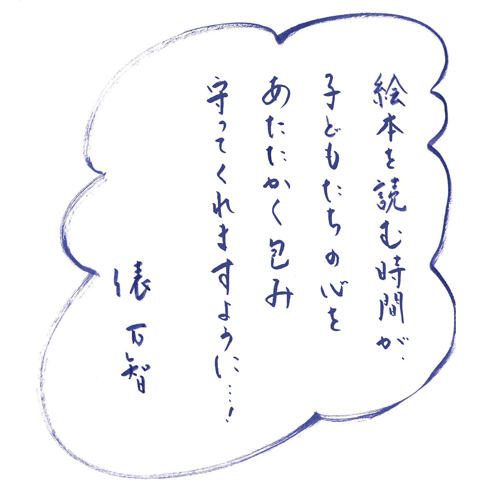 絵本を読む時間が、
子どもたちの心を
あたたかく包み
守ってくれますように…!
俵万智